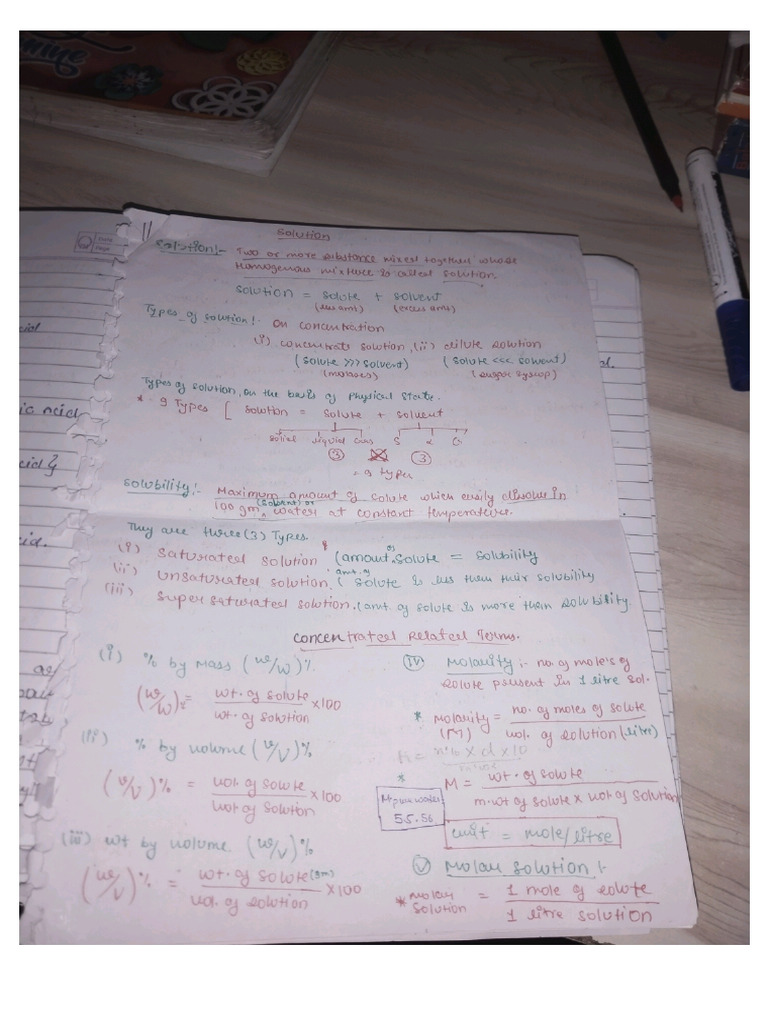 11
Solution
Solution:- Two or more substance mixed together whose
Homogenous mixture is called solution.
Solution = Solute + Solvent
(less amt) (excess amt)
Types of solution:- On concentration
(i) concentrate solution, (ii) dilute solution
(Solute >>> Solvent) (Solute <<< Solvent)
(molasses) (sugar syroop)
Types of solution, on the basis of physical state.
* 9 Types [ Solution = Solute + Solvent
Solid liquid Gas S L G
③ ③
= 9 types
Solubility:- Maximum amount of solute which easily dissolve in
100 gm (Solvent) or water at constant temperature.
They are three (3) Types.
(i) Saturated solution (amout of Solute = Solubility
(ii) Unsaturated solution. (amt. of Solute is less them their solubility
(iii) Super saturated solution. (amt. of solute is more them solubility.
Concentrated Related Terms.
(i) % by Mass (w/W)%
(w/W)% = wt. of solute/wt. of solution ×100
(ii) % by volume (v/V)%
(v/V)% = vol. of solute/vol of solution ×100
(iii) wt by volume (w/V)%
(w/V)% = wt. of solute(gm)/vol. of solution ×100
(iv) Molarity :- no. of mole's of
solute present in 1 litre sol.
* Molarity (M) = no. of moles of solute/vol. of solution (litre)
* M = wt. of solute/m.wt of solute x vol of solution
M pure water
55.56
Unit = mole/litre
(v) Molar solution:-
* Molar Solution = 1 mole of solute/1 litre solution
cid
ic acid
cid
id.
d.